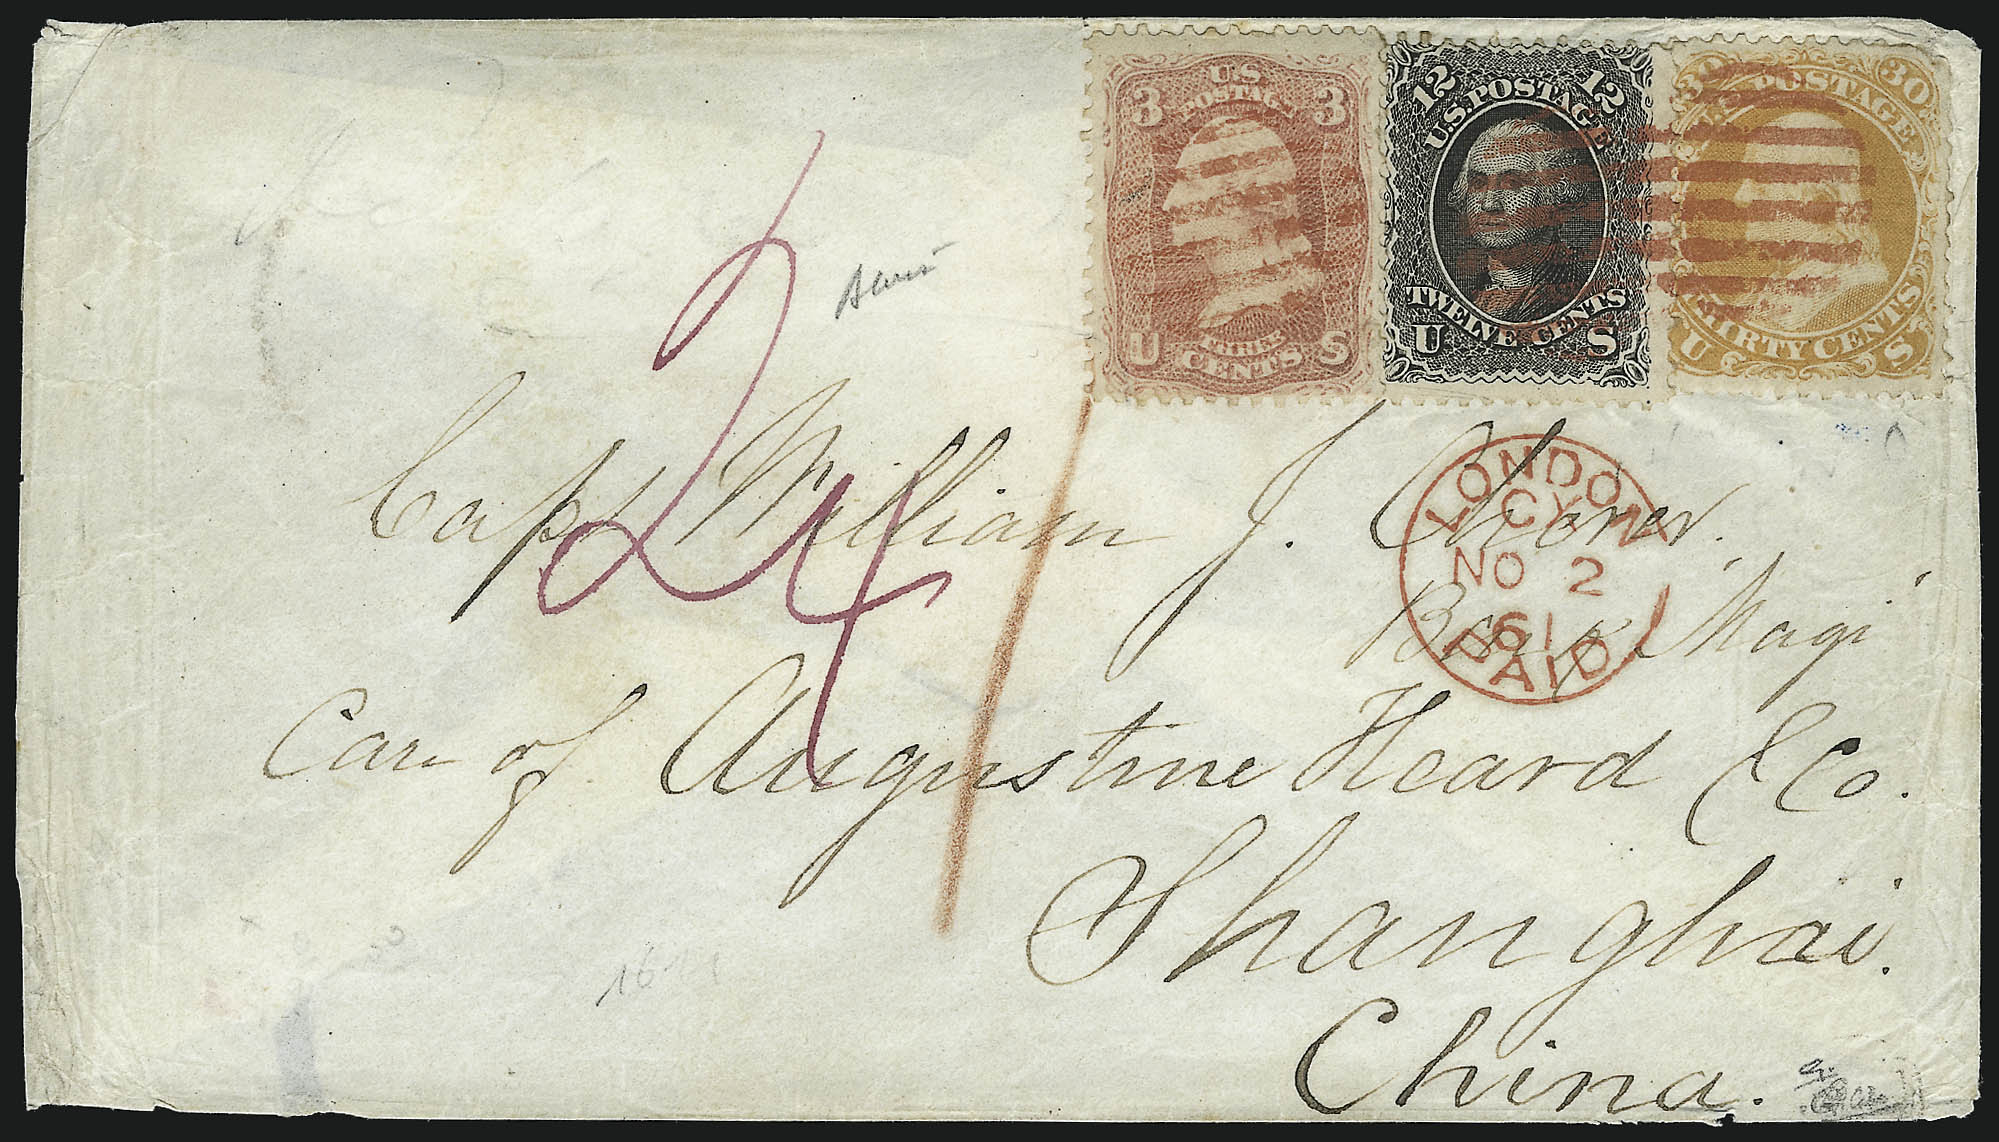 3 U.S. POSTAGE 3
THREE CENTS
U S
12 U.S. POSTAGE 12
TWELVE CENTS
U S
30 U.S. POSTAGE 30
THIRTY CENTS
U S
24
Capt William J. Chever.
Bark Magi
Care of Augustine Heard & Co.
Shanghai.
China.
LONDON
CY
NO 2
61
PAID